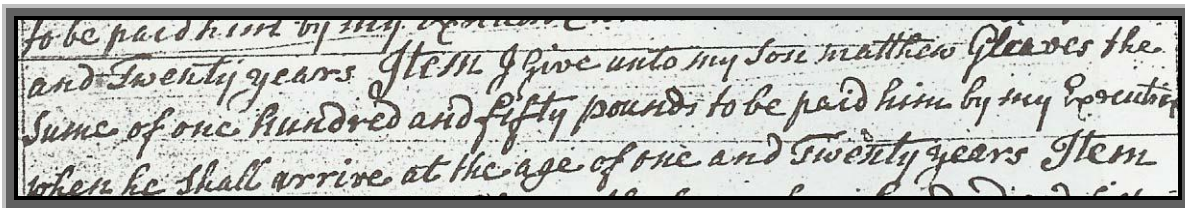 to be paid him by my
and Twenty years Item I Give unto my Son matthew Gleaves the
Sume of one hundred and fifty pounds to be paid him by my Executrix
when he Shall arrive at the age of one and Twenty years Item